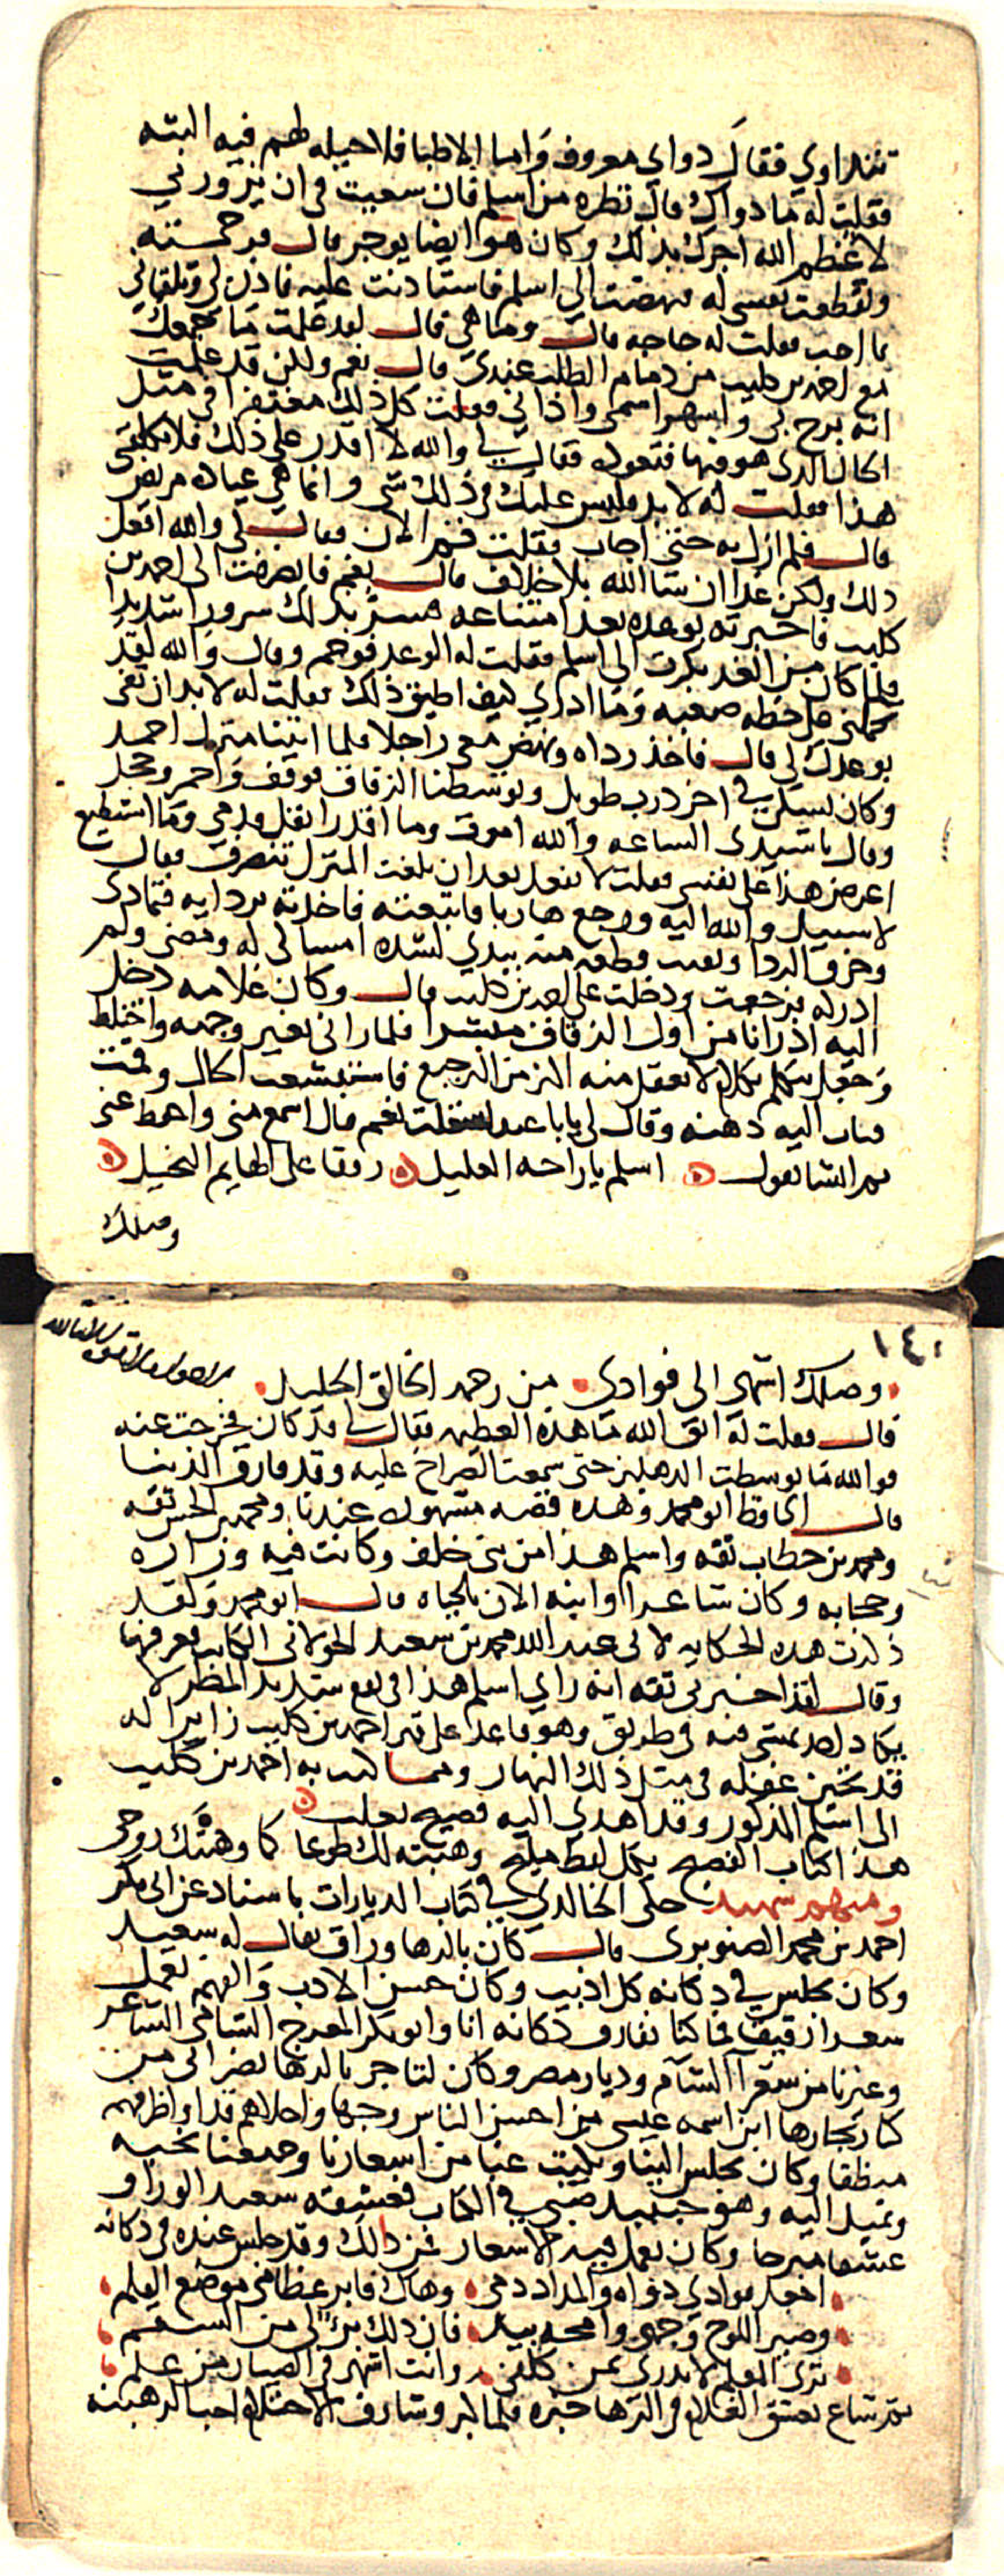 تتداوي فقال دواي معروف واما الاطبا فلا حيله لهم فيه البته
فقلت له ما دواك قال نظره من اسلم فان سعيت في ان يزورني
لاعظم الله اجرك بذلك وكان هو ايضا يوجر قال فرحمته
وتقطعت نفسي له فنهضت الي اسلم فاستاذنت عليه فاذن لي وتلقاني
بما احب فقلت له حاجه قال وما هي قال لقد علمت ما جمعك
مع احمد بن كليب من ذمام الطلب عندي قال نعم ولكن قد علمت
انه برح بي واشهر اسمي واذاني فقلت كل ذلك مغتفر في مثل
الحال الذي هو فيها فتعوده فقال لي والله لا اقدر علي ذلك فلا تكلفني
هذا فقلت له لا بد وليس عليك في ذلك شي وانما هي عياده مريض
قال فلم ازل به حتي اجاب فقلت فقم الان فقال لي والله افعل
ذلك ولكن غدا ان شا الله بلا خلاف قال نعم فانصرفت الي احمد بن
كليب فاخبرته بوعده بعد امتناعه فسر بذلك سرورا شديدا
فلما كان من الغد بكرت الي اسلم فقلت له الوعد فوجم وقال والله لقد
تحملني علي خطه صعبه وما ادري كيف اطيق ذلك فقلت له لا بد ان تفي
بوعدك لي قال فاخذ رداه ونهض معي راجلا فلما اتينا منزل احمد
وكان يسكن في اخر درب طويل وتوسطنا الزقاق فوقف واحمر وخجل
وقال يا سيدي الساعه والله اموت وما اقدر انقل قدمي وما استطيع
اعرض هذا علي نفسي فقلت لا تفعل بعد ان بلغت المنزل تنصرف فقال
لا سبيل والله اليه ورجع هاربا فاتبعته فاخذته بردايه فتمادي
وخرق الردا وبقيت قطعه منه بيدي لشده امساكي له ومضي ولم
ادركه فرجعت ودخلت علي احمد بن كليب قال وكان غلامه دخل
اليه اذ رانا من اول الزقاق مبشرا فلما راني تغير وجهه واختلط
وجعل يتكلم بكلام لا يعقل منه اكثر من الترجيع فاستبشعت الحال وقمت
فثاب اليه ذهنه وقال لي يا با عبد الله قلت نعم قال اسمع مني واحفظ عني
ثم انشا يقول ٥ اسلم يا راحه العليل ٥ رفقا علي الهايم النحيل ٥
وصلك
١٤٠
وصلك اشهي الي فوادي من رحمه الخالق الجليل
قال فقلت له اتق الله ما هذه العظيمه فقال لي قد كان فخرجت عنه
فوالله ما توسطت الدهليز حتي سمعت الصراخ عليه وقد فارق الدنيا
قال الحافظ ابو محمد وهذه قصه مشهوره عندنا ومحمد بن الحسن ثقه
ومحمد بن خطاب ثقه واسلم هذا من بني خلف وكانت فيه وزاره
وحجابه وكان شاعرا وابنه الان بالحياه قال ابو محمد ولقد
ذكرت هذه الحكايه لابي عبد الله محمد بن سعيد الخولاني الكاتب فعرفها
وقال لقد اخبرني ثقه انه راي اسلم هذا في يوم شديد المطر لا
يكاد احد يمشي فيه في طريق وهو قاعد علي قبر احمد بن كليب زايرا له
قد تحين غفله في مثل ذلك النهار ومما كتب به احمد بن كليب
الي اسلم المذكور وقد اهدي اليه فصيح ثعلب ٥
هذا كتاب الفصيح بكل لفظ مليح وهبته لك طوعا كما وهبتك روحي
ومنهم سعيد حكي الخالدي في كتاب الديارات باسناد عن ابي بكر
احمد بن محمد الصنوبري قال كان بالرها وراق يقال له سعيد
وكان مجلس في دكانه كل اديب وكان حسن الادب والفهم يعمل
شعرا رقيقا فما كنا نفارق دكانه انا وابو بكر المعوج الشامي الشاعر
وغيرنا من شعرا الشام وديار مصر وكان لتاجر بالرها نصراني من
كبار تجارها ابن اسمه عيسي من احسن الناس وجها واحلاهم قدا واظرفهم
منطقا وكان يجلس الينا ويكتب عنا من اشعارنا وجميعنا نحبه
ونميل اليه وهو حينيذ صبي في الكتاب فعشقه سعيد الوراق
عشقا مبرحا وكان يعمل فيه الاشعار فمن ذلك وقد جلس عنده في دكانه
اجعل فوادي دواه والمداد دمي وهاك فابر عظامي موضع القلم
وصير اللوح وجهي وامحه بيد فان ذلك برء لي من السقم
تري المعلم لا يدري بمن كلفي وانت اشهر في الصبيان من علم
ثم شاع بعشق الغلام في الرها خبره فلما كبر وشارف الاحتلام احب الرهبنه